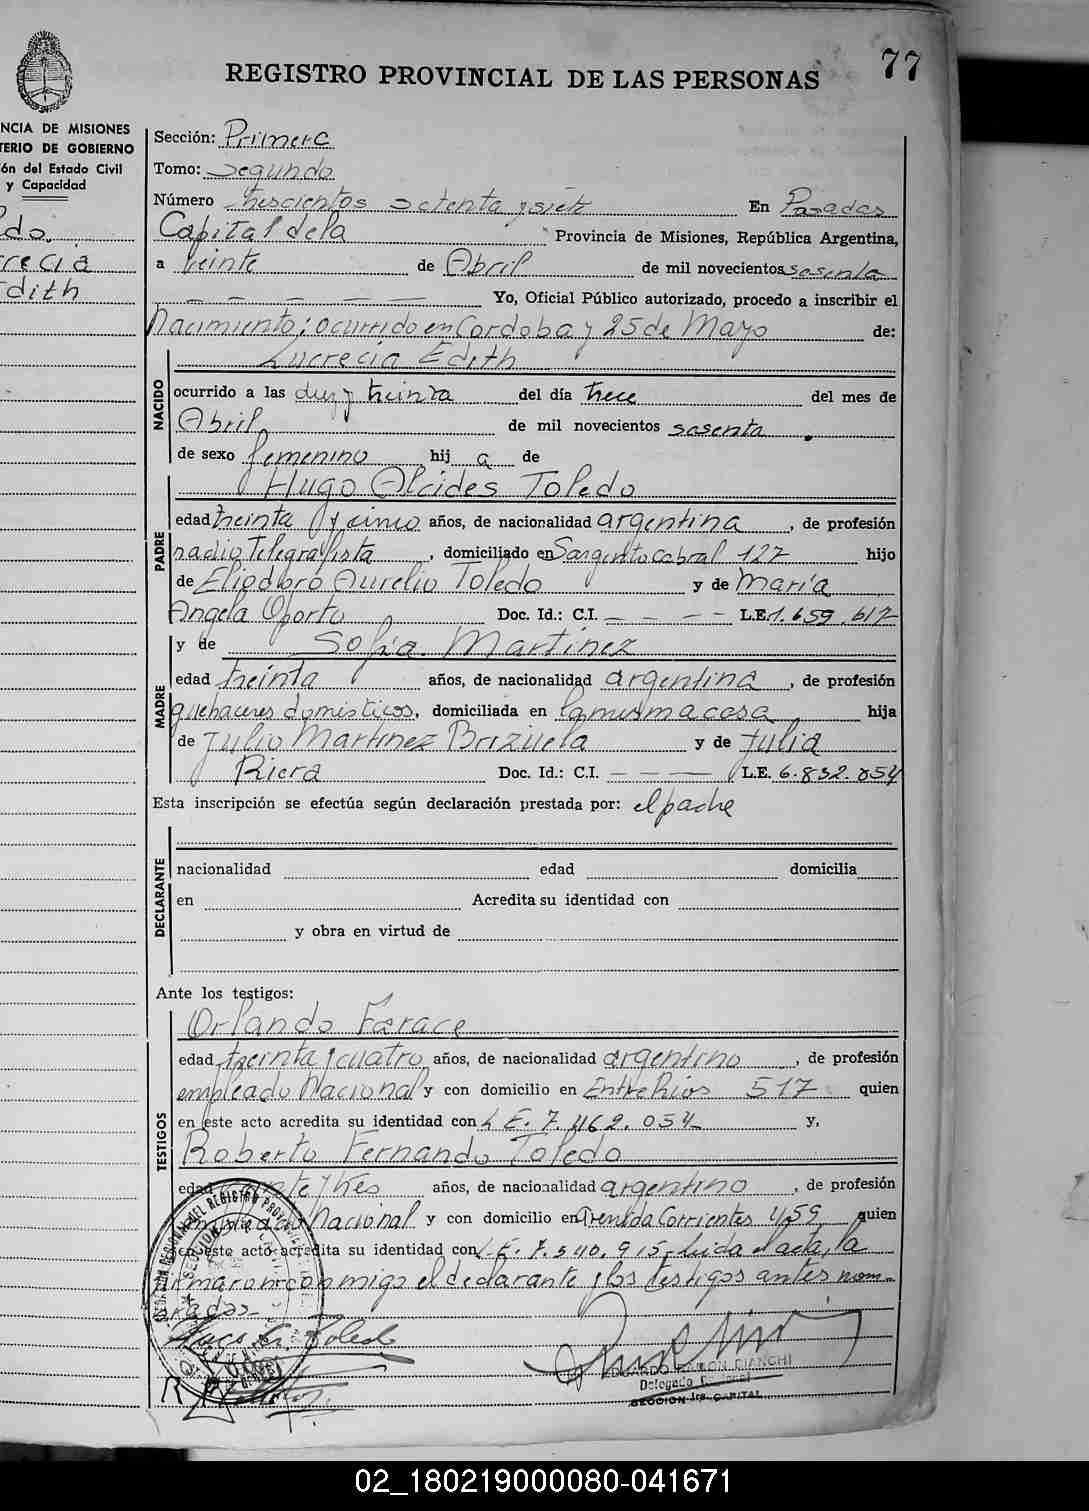 77
REGISTRO PROVINCIAL DE LAS PERSONAS
NCIA DE MISIONES
TERIO DE GOBIERNO
ón del Estado Civil
y Capacidad
do.
recia
dith
Sección: Primera
Tomo: Segundo
Número trescientos setenta y siete En Posadas
Capital de la Provincia de Misiones, República Argentina,
a veinte de Abril de mil novecientos sesenta
Yo, Oficial Público autorizado, procedo a inscribir el
Nacimiento; ocurrido en Cordoba y 25 de Mayo de:
Lucrecia Edith
NACIDO
ocurrido a las diez y treinta del día trece del mes de
Abril de mil novecientos sesenta.
de sexo femenino hij a de
Hugo Alcides Toledo
PADRE
edad treinta y cinco años, de nacionalidad argentina, de profesión
radio Telegrafista, domiciliado en Sargento Cabral 127 hijo
de Eliodoro Aurelio Toledo y de María
Angela Oporto Doc. Id.: C.I. — — — L.E. 1.659.617
y de Sofía Martinez
MADRE
edad treinta años, de nacionalidad argentina, de profesión
quehaceres domésticos, domiciliada en la misma casa hija
de Julio Martinez Brizuela y de Julia
Riera Doc. Id.: C.I. — — — L.E. 6.832.054
Esta inscripción se efectúa según declaración prestada por: el padre
DECLARANTE
nacionalidad edad domicilia
en Acredita su identidad con
y obra en virtud de
Ante los testigos:
Orlando Farace
TESTIGOS
edad treinta y cuatro años, de nacionalidad argentino, de profesión
empleado Nacional y con domicilio en Entre Rios 517 quien
en este acto acredita su identidad con L.E. 7.462.054 y,
Roberto Fernando Toledo
edad y tres años, de nacionalidad argentino, de profesión
Nacional y con domicilio en Avenida Corrientes 459 quien
en este acto acredita su identidad con L.E. 7.540.915 Leida el acta, la
firmaron conmigo el declarante y los testigos antes nom-
brados-
EDUARDO RAMON BIANCHI
Delegado
SECCION 1ra. CAPITAL
02_180219000080-041671